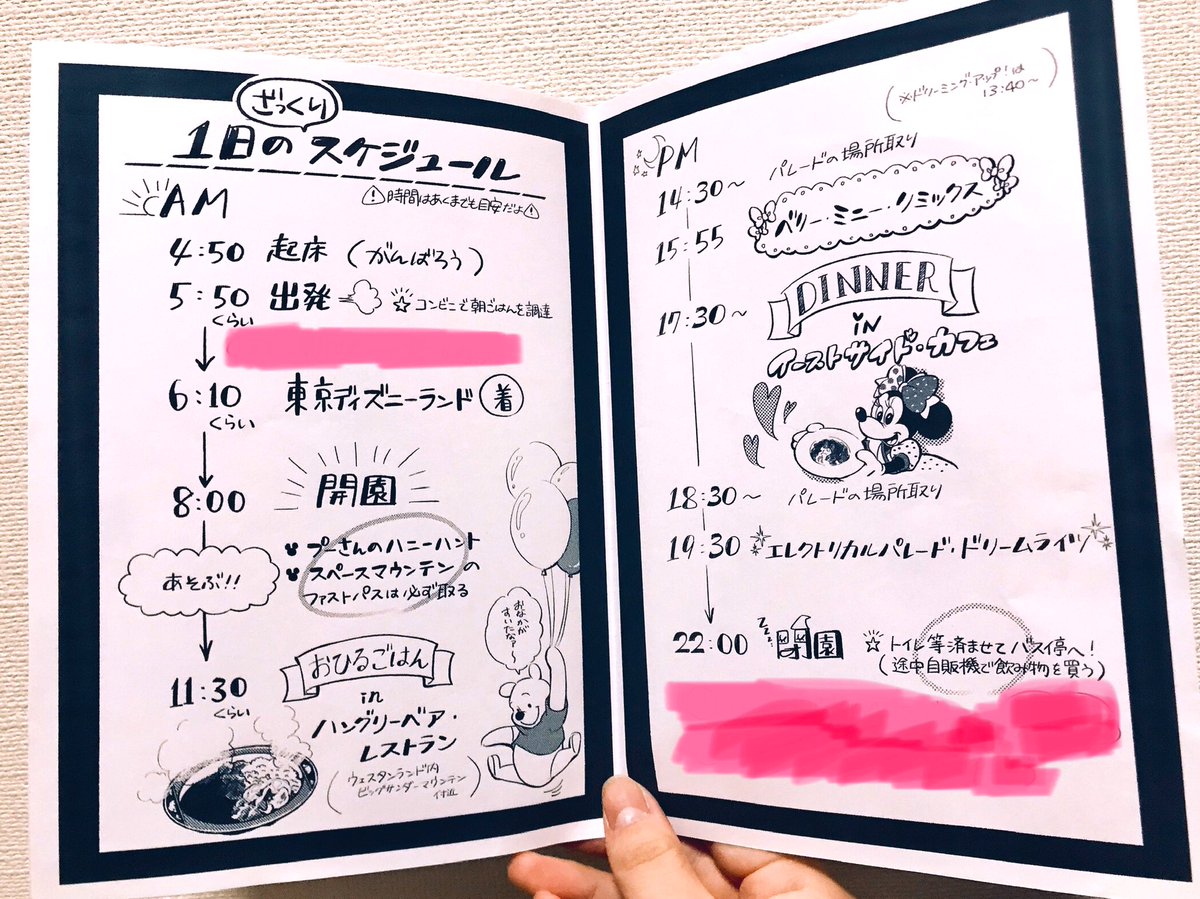 ざっくり
1日のスケジュール
AM
時間はあくまでも目安だよ
4:50 起床(がんばろう)
5:50 出発 ☆コンビニで朝ごはんを調達
くらい
6:10 東京ディズニーランド 着
くらい
8:00 開園
あそぶ!!
プーさんのハニーハント
スペースマウンテンの
ファストパスは必ず取る
おなかが
すいたなぁ〜
11:30 おひるごはん
くらい
in
ハングリーベア・
レストラン
(ウェスタンランド内
ビッグサンダーマウンテン
付近)
(※ドリーミング・アップ!は
13:40〜)
PM
14:30〜 パレードの場所取り
15:55 ベリー・ミニー・リミックス
17:30〜 DINNER
iN
イーストサイド・カフェ
18:30〜 パレードの場所取り
19:30 エレクトリカルパレード・ドリームライツ
22:00 zzz 閉園 ☆トイレ等済ませてバス停へ!
(途中自販機で飲み物を買う)